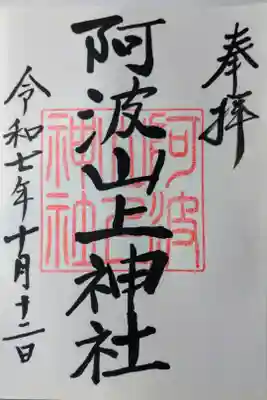 奉拝
阿波山上神社
令和七年十月十二日
阿波
山上
神社